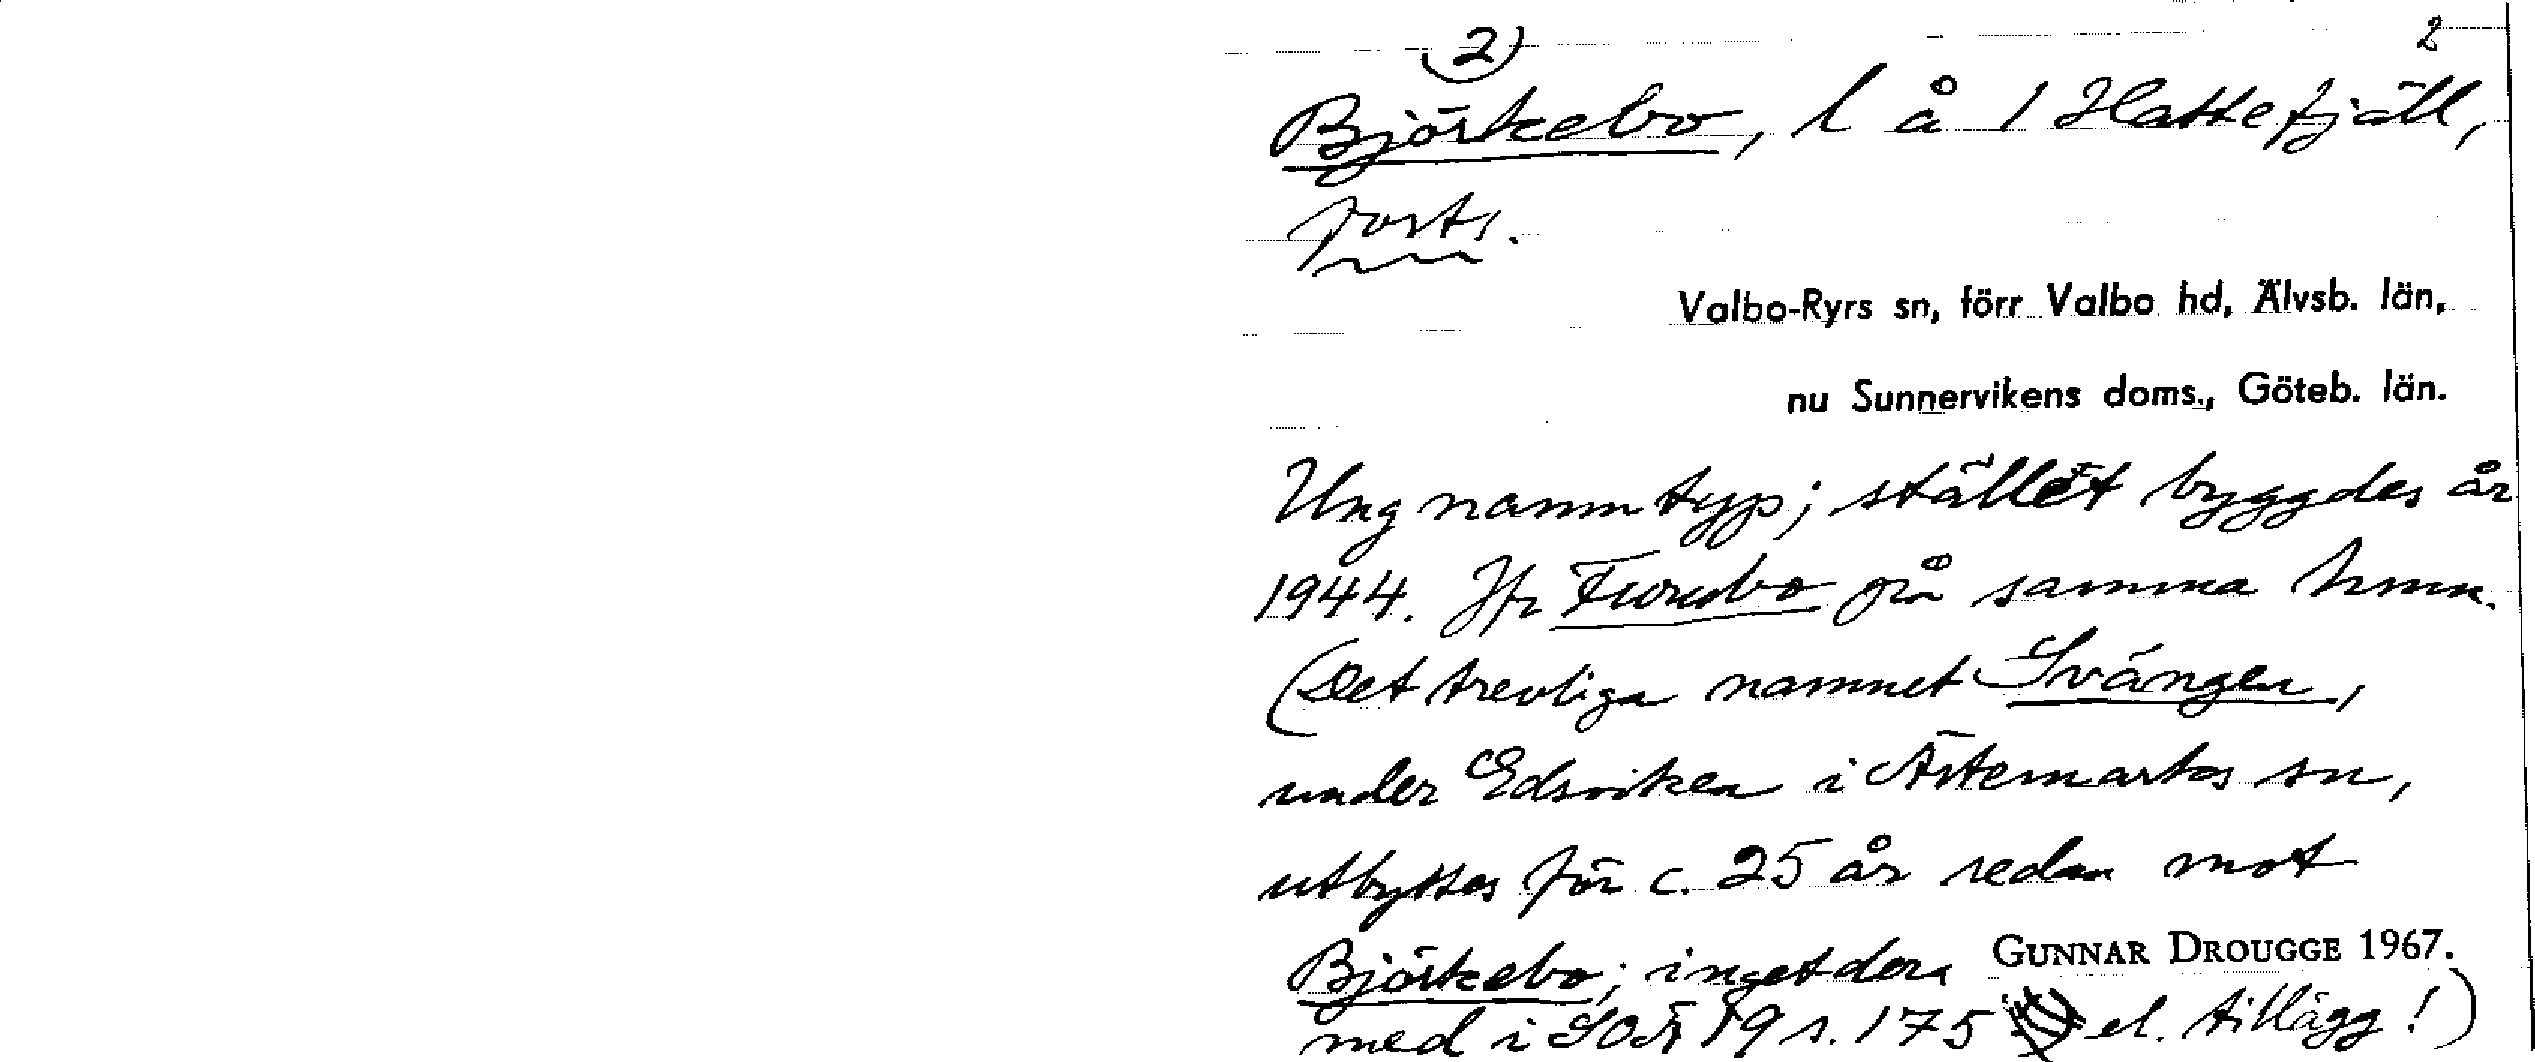 2) 2
Björkebo, l å 1 Hattefjäll,
forts.
Valbo-Ryrs sn, förr Valbo hd, Älvsb. län,
nu Sunnervikens doms., Göteb. län.
Ung namntyp; stället byggdes år
1944. Jfr Furubo på samma hmn.
(Det trevliga namnet Svängen,
under Edsviken i Ärtemarks sn,
utbyttes för c. 25 år sedan mot
Björkebo; ingetdera GUNNAR DROUGGE 1967.
med i SOÄ 19 s. 175 el. tillägg!)